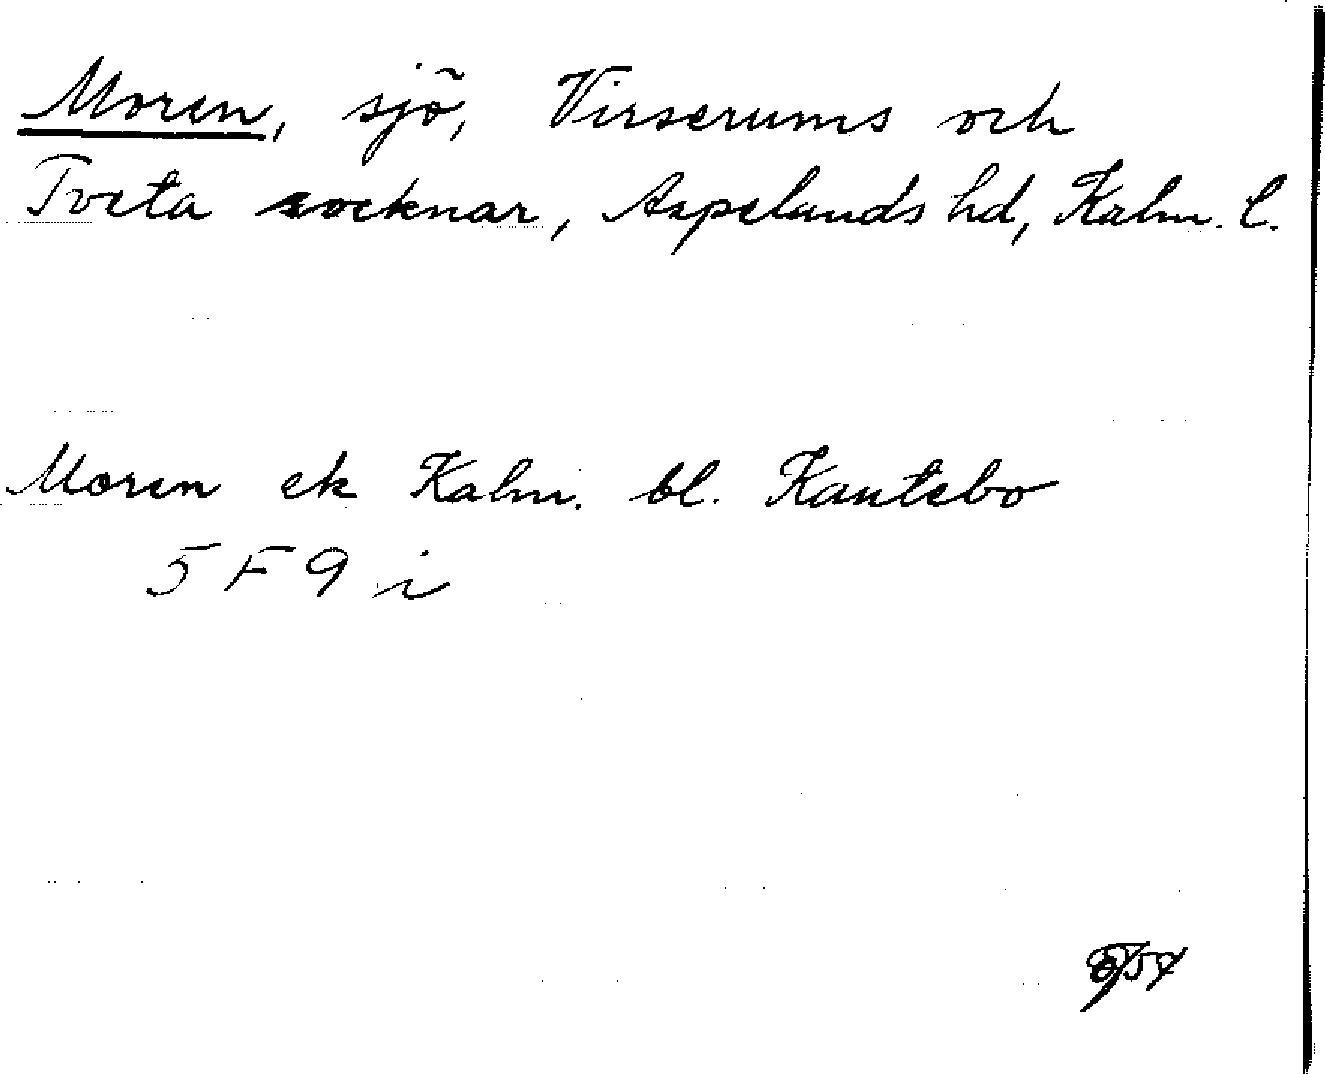 Moren, sjö, Virserums och
Tveta socknar, Aspelands hd, Kalm. l.
Moren ek Kalm. bl. Kantebo
5 F 9 i